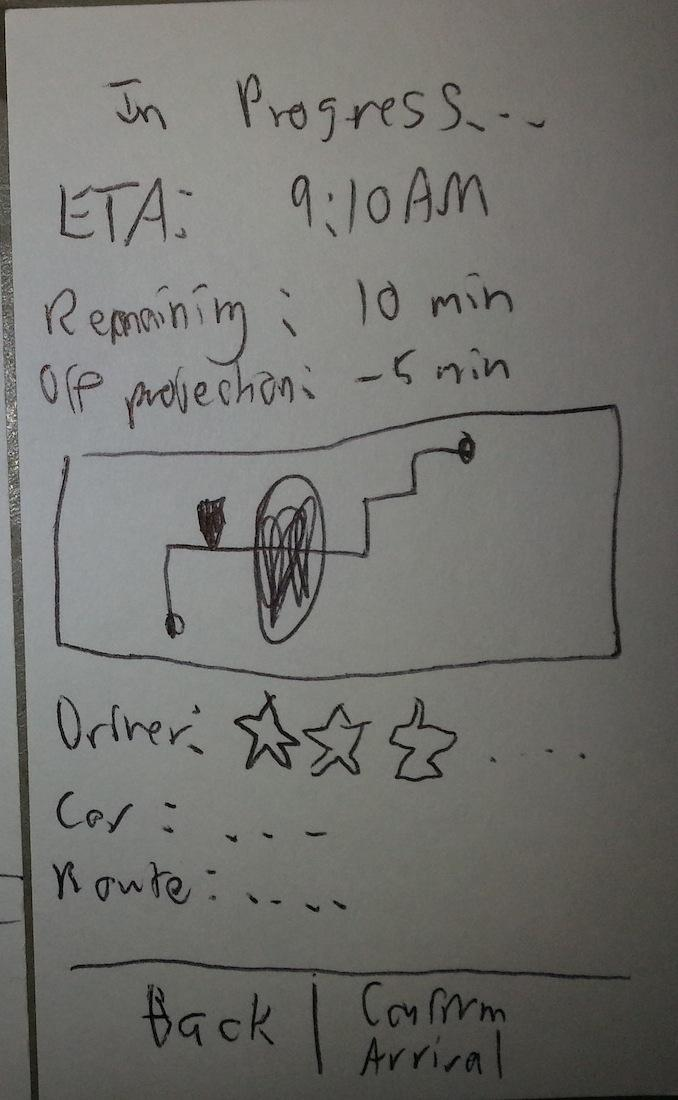 In Progress...
ETA: 9:10AM
Remaining: 10 min
Off projection: -5 min
Driver: ....
Car: ...
Route: ....
Back | Confirm
Arrival